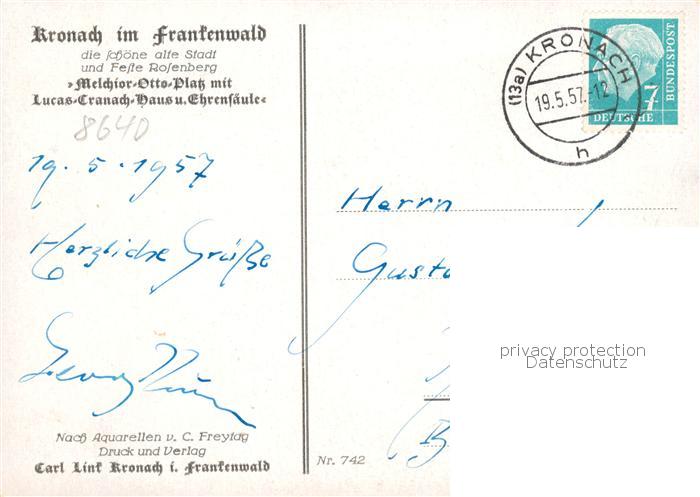 Kronach im Frankenwald
die schöne alte Stadt
und Feste Rosenberg
»Melchior-Otto-Platz mit
Lucas-Cranach-Haus u. Ehrensäule«
8640
19.5.1957
Herzliche Grüße
Georg
Nach Aquarellen v. C. Freytag
Druck und Verlag
Carl Link Kronach i. Frankenwald
Nr. 742
(13a) KRONACH
19.5.57.-12
h
7
DEUTSCHE
BUNDESPOST
Herrn
Gusta
privacy protection
Datenschutz